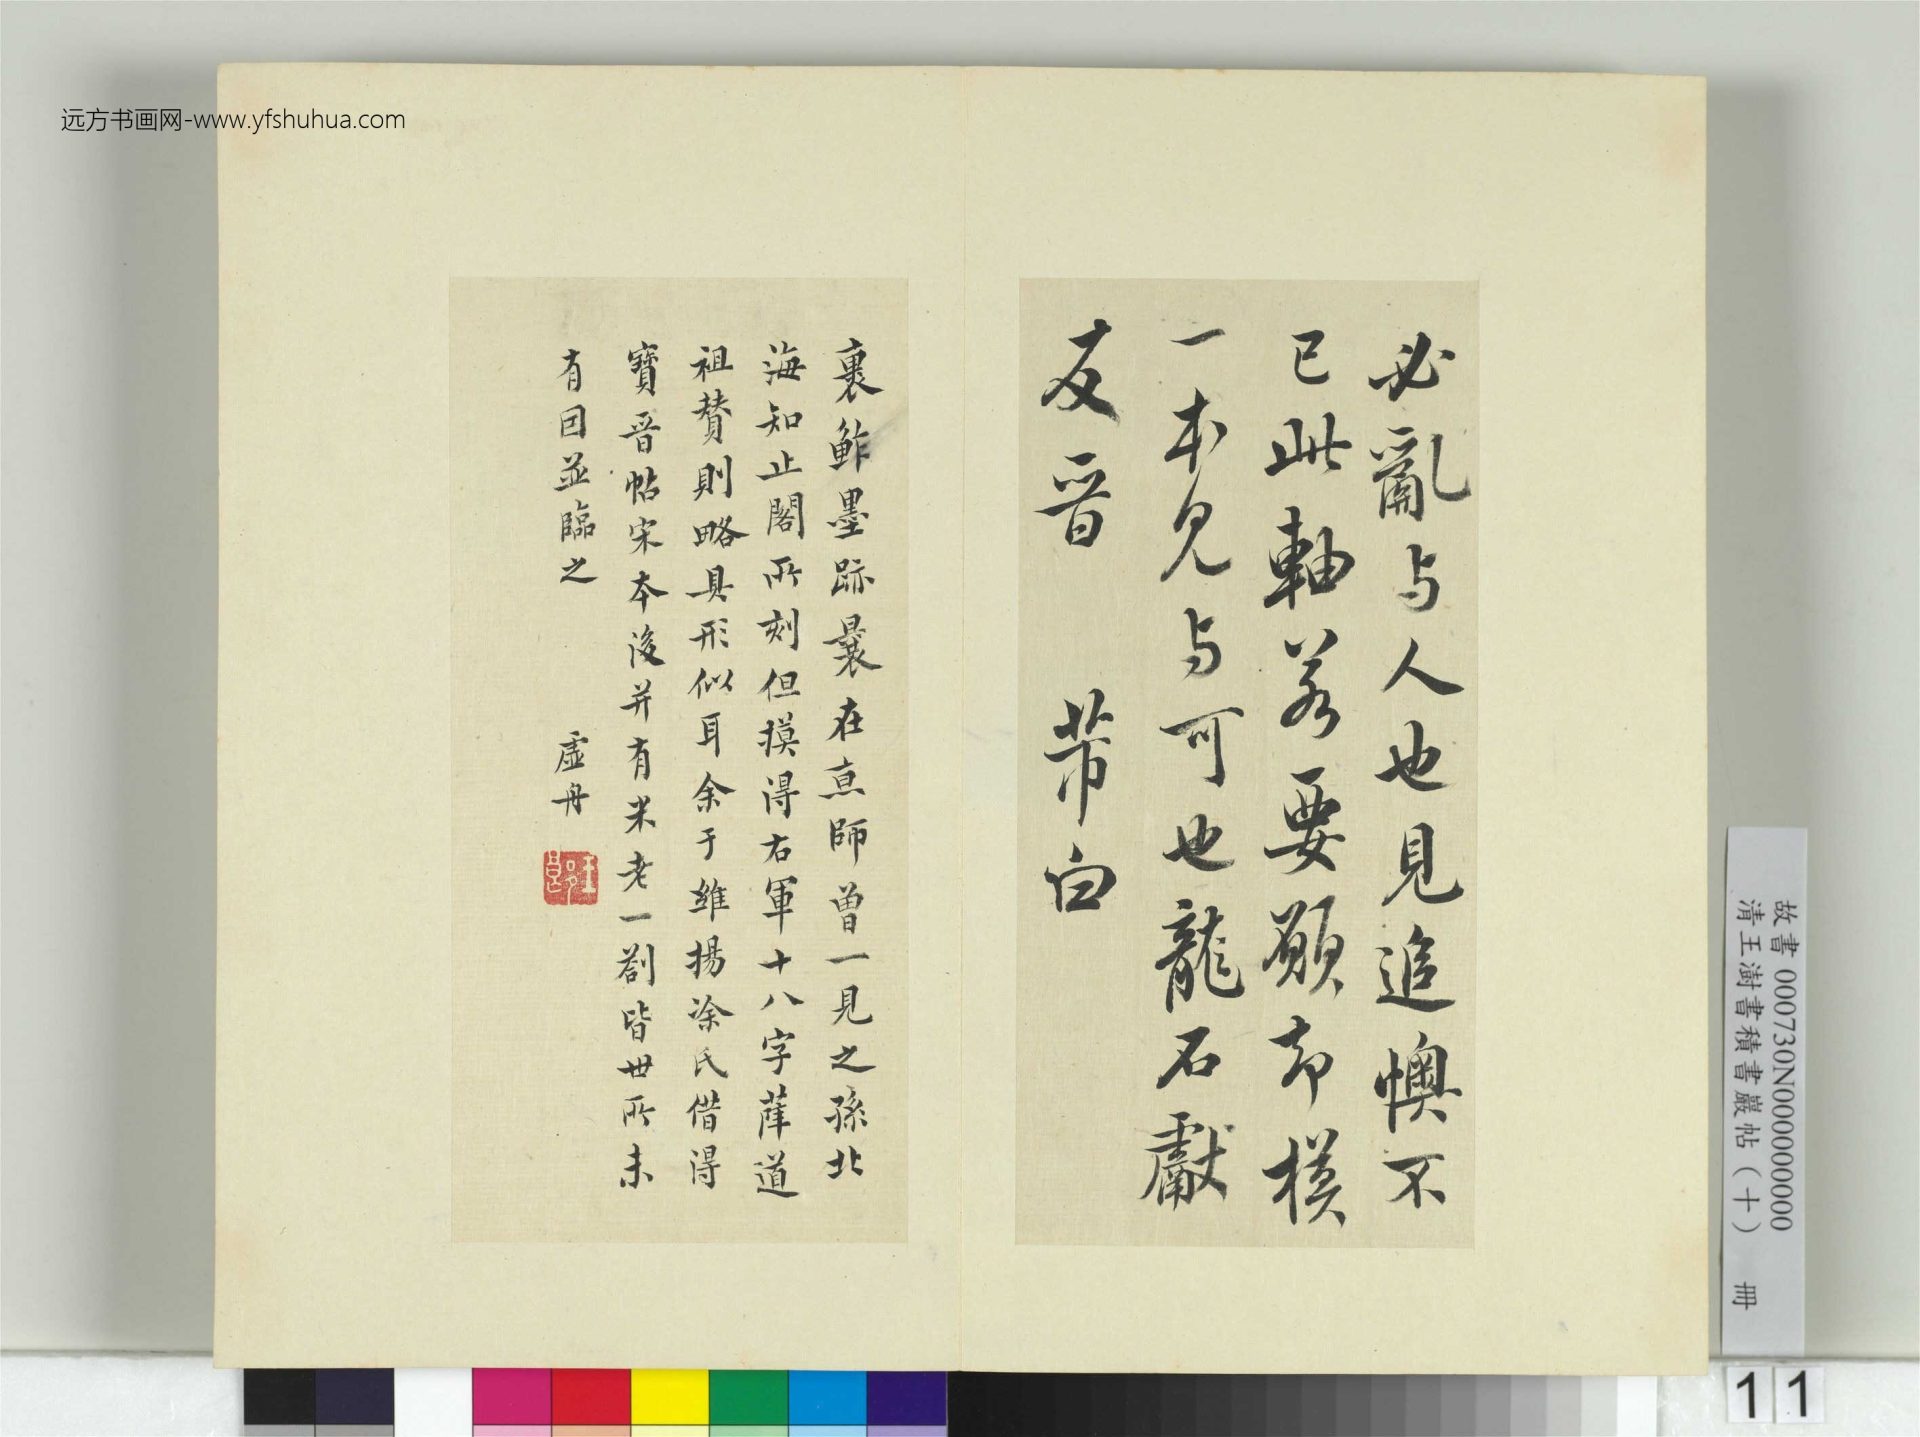 远方书画网-www.yfshuhua.com
必亂与人也見追懊不
已此軸若要願却模
一本見与可也龍石獻
友晋 芾白
裹鮓墨跡曩在京師曾一見之孫北
海知止閣所刻但摸得右軍十八字薛道
祖贊則略具形似耳余于維揚涂氏借得
寶晉帖宋本後并有米老一劄皆世所未
有因並臨之 虛舟
故書 000730N000000000
清王澍書積書巖帖（十） 冊
11